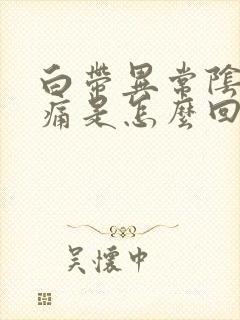 白帶異常陰
痛是怎麼回
吴懷中